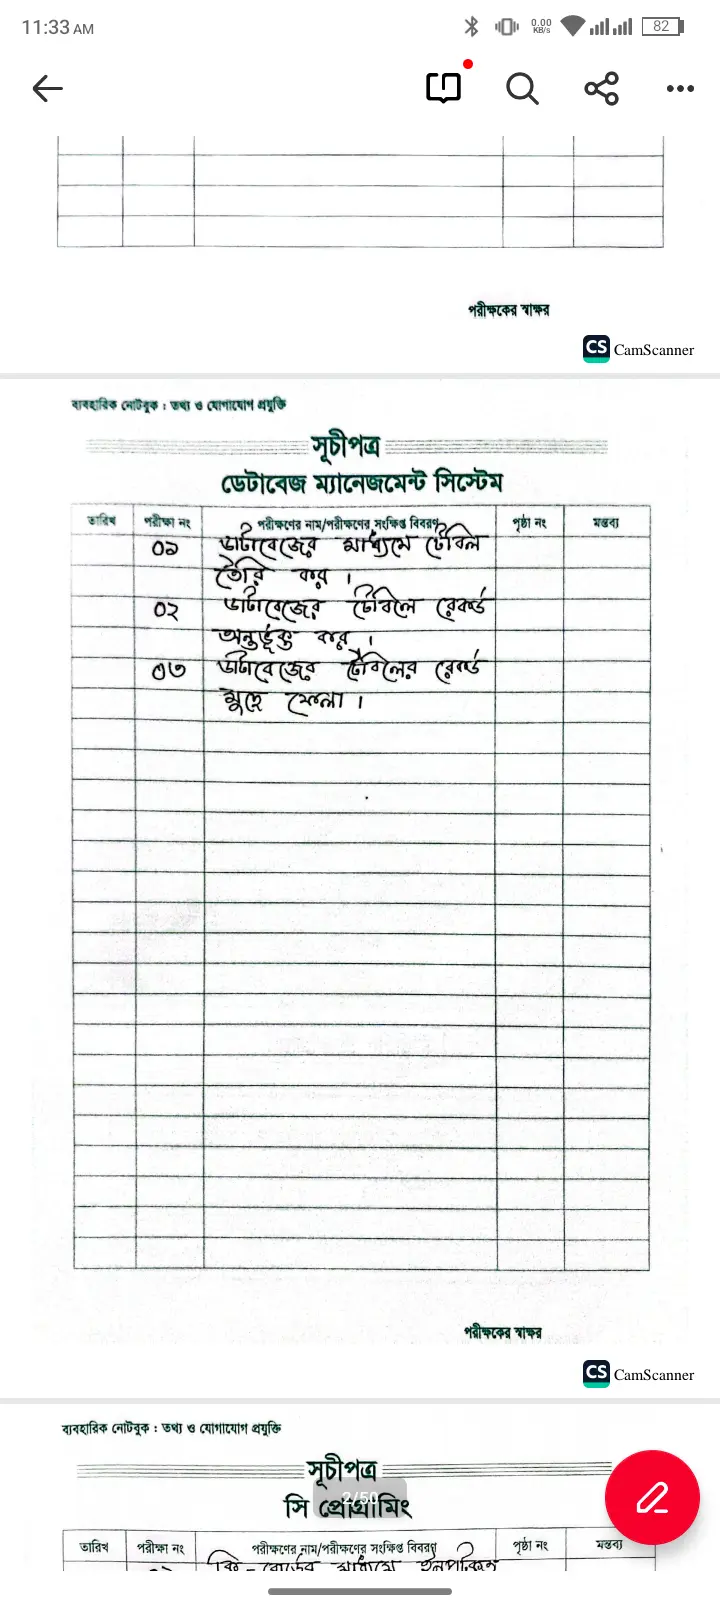 11:33 AM
0.00 KB/s
82
পরীক্ষকের স্বাক্ষর
CS CamScanner
ব্যবহারিক নোটবুক : তথ্য ও যোগাযোগ প্রযুক্তি
সূচীপত্র
ডেটাবেজ ম্যানেজমেন্ট সিস্টেম
তারিখ পরীক্ষা নং পরীক্ষণের নাম/পরীক্ষণের সংক্ষিপ্ত বিবরণ পৃষ্ঠা নং মন্তব্য
০১ ডাটাবেজের মাধ্যমে টেবিল
তৈরি কর ।
০২ ডাটাবেজের টেবিলে রেকর্ড
অন্তর্ভূক্ত কর ।
০৩ ডাটাবেজের টেবিলের রেকর্ড
মুছে ফেলা ।
পরীক্ষকের স্বাক্ষর
CS CamScanner
ব্যবহারিক নোটবুক : তথ্য ও যোগাযোগ প্রযুক্তি
সূচীপত্র
2/50
সি প্রোগ্রামিং
তারিখ পরীক্ষা নং পরীক্ষণের নাম/পরীক্ষণের সংক্ষিপ্ত বিবরণ পৃষ্ঠা নং মন্তব্য